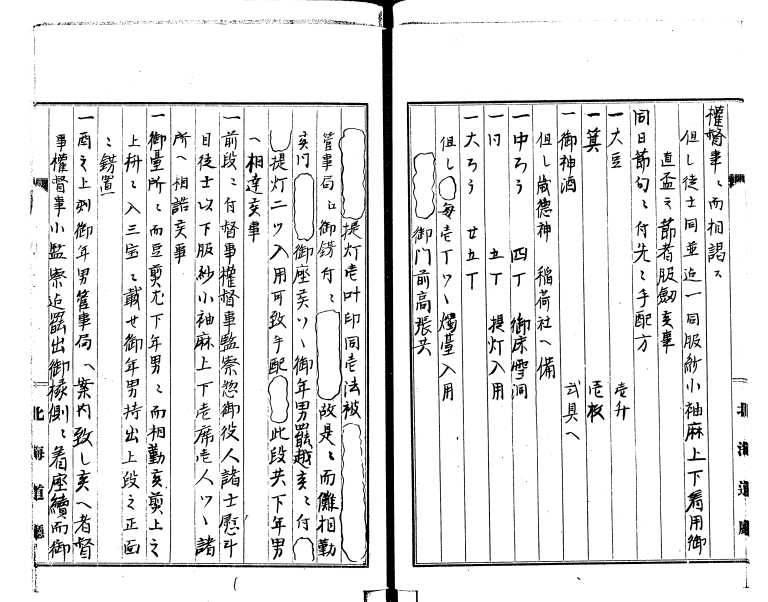 權督事ニ而相謁ス
但し徒士同並迄一同服紗小袖麻上下着用御
直盃之節者服劔亥事
同日節句ニ付先ニ手配方
一大豆 壱升
一箕 壱枚
一御神酒 式具へ
但し歳徳神 稲荷社へ備
一中ろう 四丁 御床雪洞
一〃 五丁 提灯入用
一大ろう 廿五丁
但し 毎壱丁ツヽ燭臺入用
御門前高張共
提灯壱叶印同壱法被
管事局ニ御錺付ニ 故是ニ而儺相勤
亥内 御座亥ハヽ御年男罷越亥ニ付
提灯二ツ入用可致手配 此段共下年男
へ相達亥事
一前段ニ付督事權督事監察惣御役人諸士慰斗
目徒士以下服紗小袖麻上下壱席壱人ツヽ諸
所へ相詰亥事
一御臺所ニ而豆剪尤下年男ニ而相勤亥剪上之
上枡ニ入三宝ニ載せ御年男持出上段之正面
ニ錺置
一酉之上刻御年男管事局へ案内致し亥へ者督
事權督事小監察迄罷出御椽側ニ着座續而御
北海道廳